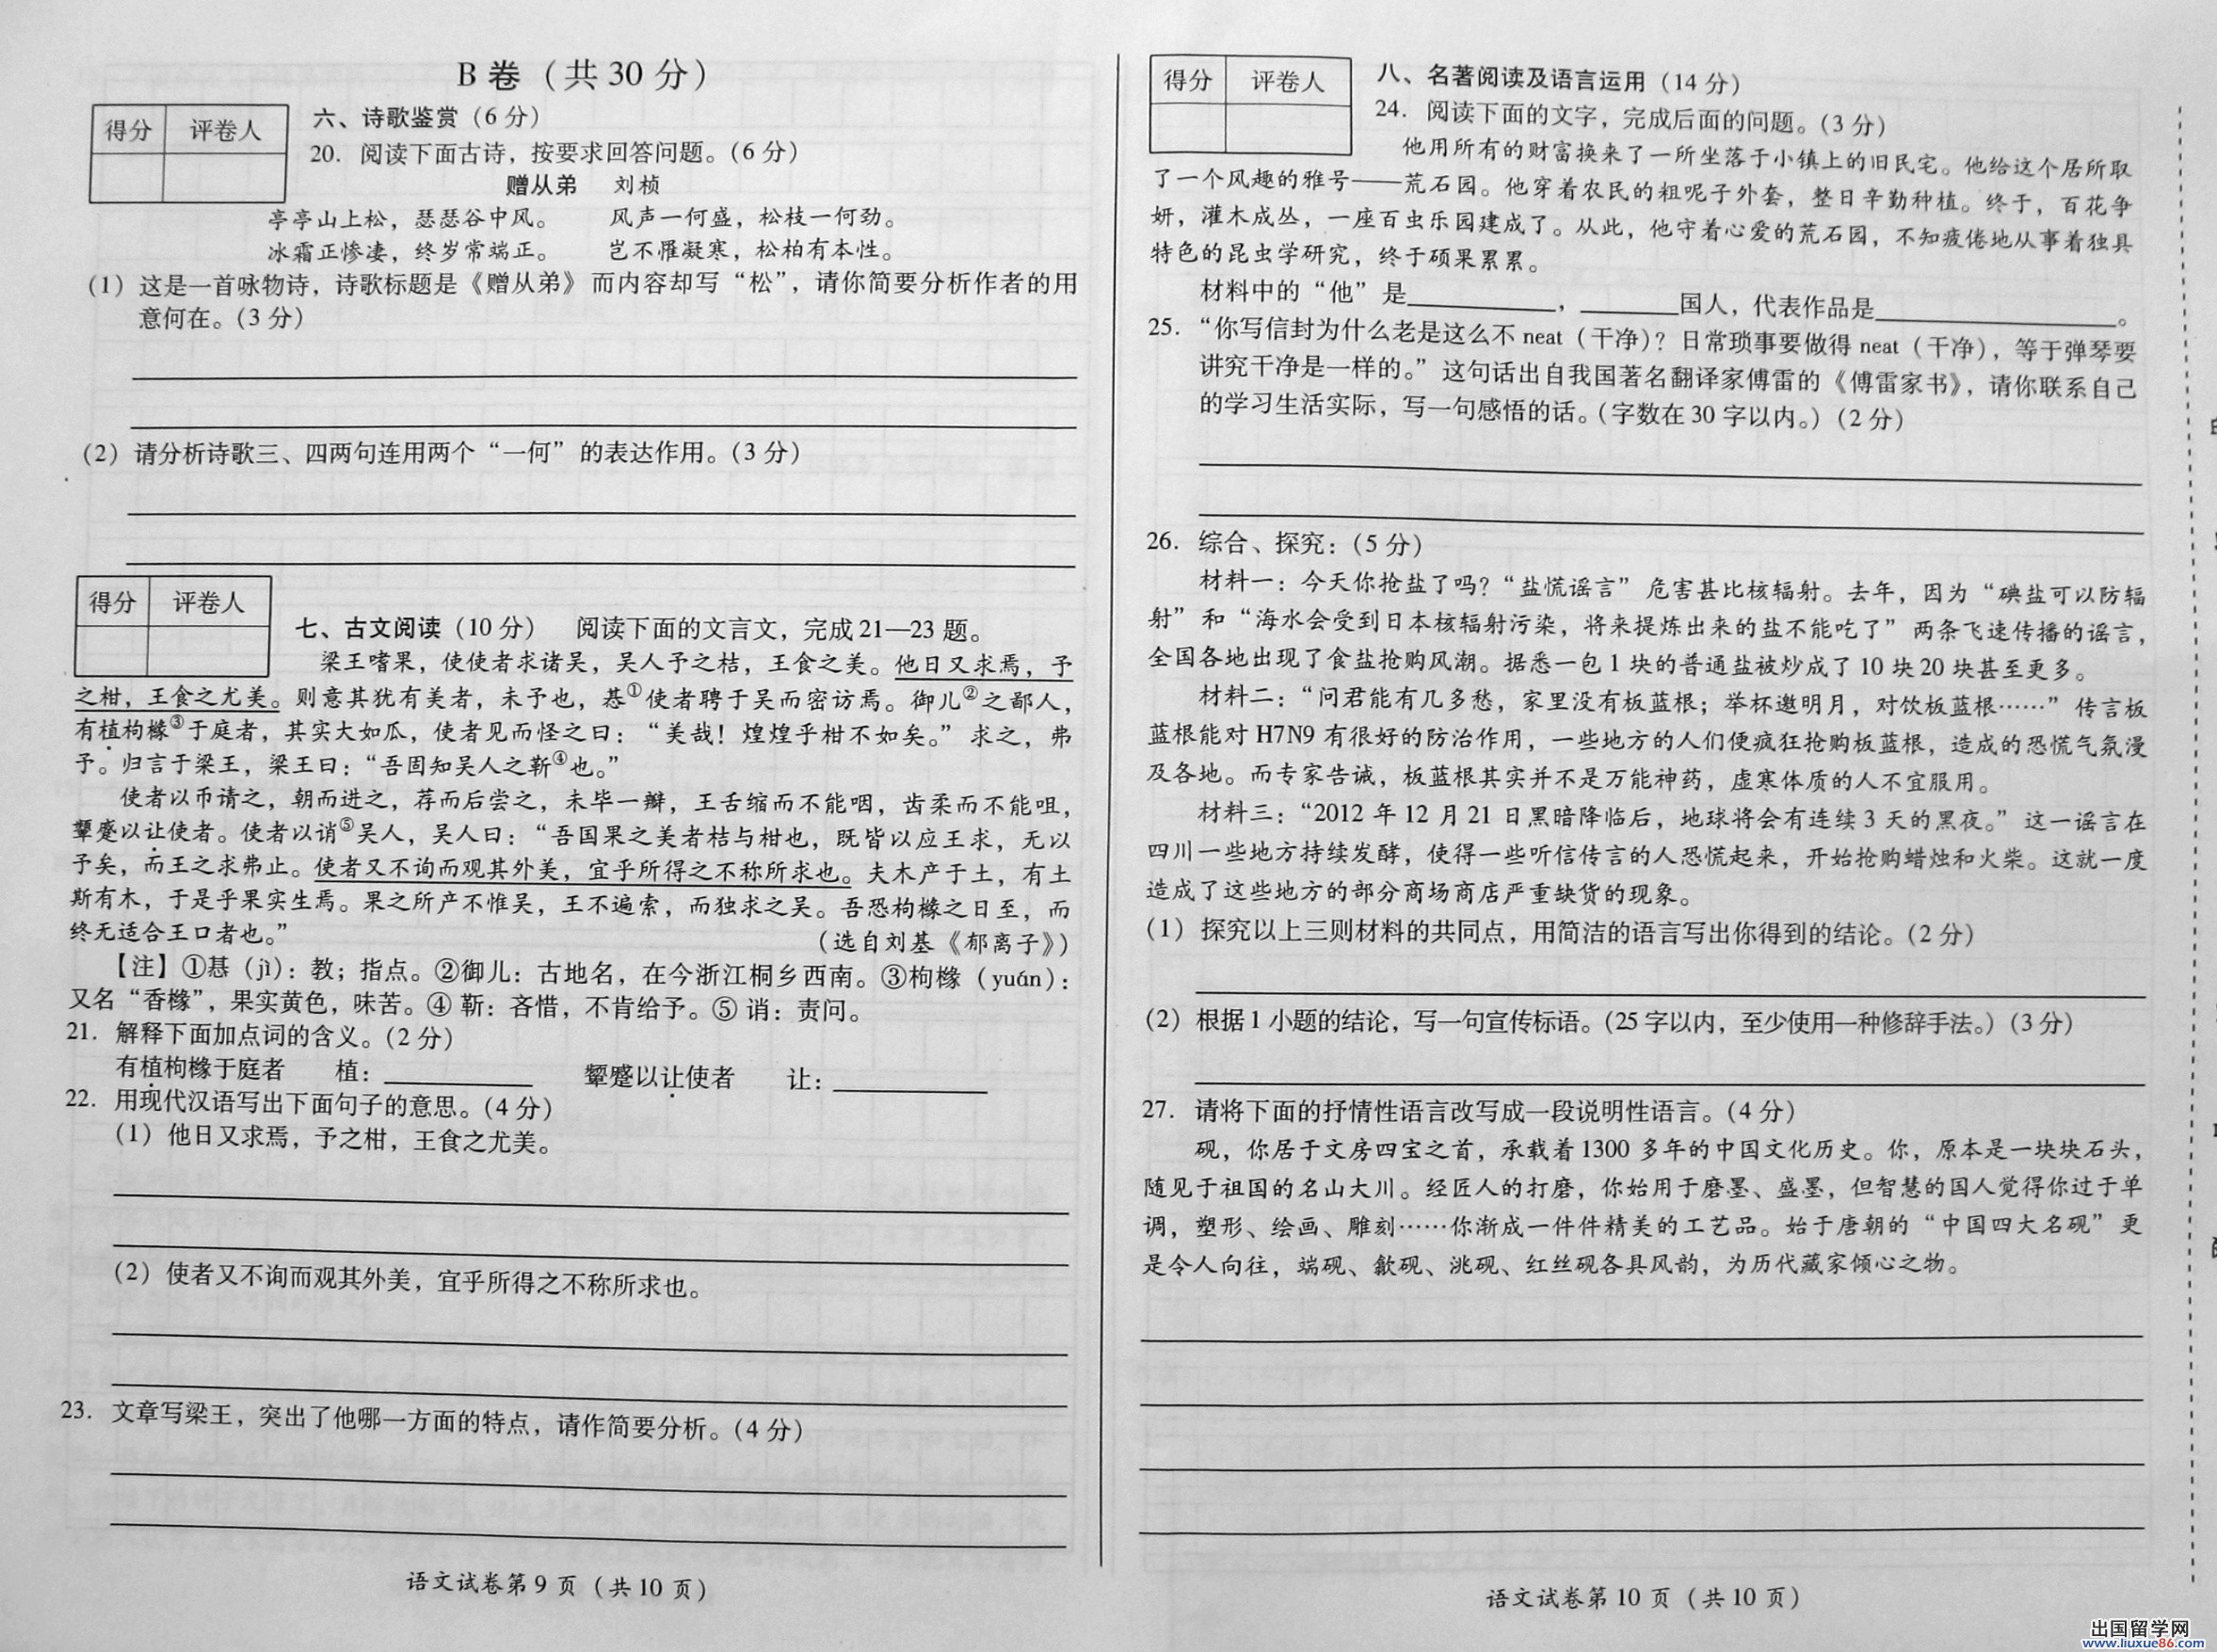 B 卷（共 30 分）
得分 评卷人
六、诗歌鉴赏（6 分）
20. 阅读下面古诗，按要求回答问题。（6 分）
赠从弟 刘桢
亭亭山上松，瑟瑟谷中风。 风声一何盛，松枝一何劲。
冰霜正惨凄，终岁常端正。 岂不罹凝寒，松柏有本性。
（1）这是一首咏物诗，诗歌标题是《赠从弟》而内容却写“松”，请你简要分析作者的用
意何在。（3 分）
（2）请分析诗歌三、四两句连用两个“一何”的表达作用。（3 分）
得分 评卷人
七、古文阅读（10 分） 阅读下面的文言文，完成 21—23 题。
梁王嗜果，使使者求诸吴，吴人予之桔，王食之美。他日又求焉，予
之柑，王食之尤美。则意其犹有美者，未予也，惎①使者聘于吴而密访焉。御儿②之鄙人，
有植枸橼③于庭者，其实大如瓜，使者见而怪之曰：“美哉！煌煌乎柑不如矣。”求之，弗
予。归言于梁王，梁王曰：“吾固知吴人之靳④也。”
使者以币请之，朝而进之，荐而后尝之，未毕一瓣，王舌缩而不能咽，齿柔而不能咀，
颦蹙以让使者。使者以诮⑤吴人，吴人曰：“吾国果之美者桔与柑也，既皆以应王求，无以
予矣，而王之求弗止。使者又不询而观其外美，宜乎所得之不称所求也。夫木产于土，有土
斯有木，于是乎果实生焉。果之所产不惟吴，王不遍索，而独求之吴。吾恐枸橼之日至，而
终无适合王口者也。”
（选自刘基《郁离子》）
【注】①惎（jì）：教；指点。②御儿：古地名，在今浙江桐乡西南。③枸橼（yuán）：
又名“香橼”，果实黄色，味苦。④ 靳：吝惜，不肯给予。⑤ 诮：责问。
21. 解释下面加点词的含义。（2 分）
有植枸橼于庭者 植： 颦蹙以让使者 让：
22. 用现代汉语写出下面句子的意思。（4 分）
（1）他日又求焉，予之柑，王食之尤美。
（2）使者又不询而观其外美，宜乎所得之不称所求也。
23. 文章写梁王，突出了他哪一方面的特点，请作简要分析。（4 分）
语文试卷第 9 页（共 10 页）
得分 评卷人
八、名著阅读及语言运用（14 分）
24. 阅读下面的文字，完成后面的问题。（3 分）
他用所有的财富换来了一所坐落于小镇上的旧民宅。他给这个居所取
了一个风趣的雅号——荒石园。他穿着农民的粗呢子外套，整日辛勤种植。终于，百花争
妍，灌木成丛，一座百虫乐园建成了。从此，他守着心爱的荒石园，不知疲倦地从事着独具
特色的昆虫学研究，终于硕果累累。
材料中的“他”是 ， 国人，代表作品是 。
25. “你写信封为什么老是这么不 neat（干净）？日常琐事要做得 neat（干净），等于弹琴要
讲究干净是一样的。”这句话出自我国著名翻译家傅雷的《傅雷家书》，请你联系自己
的学习生活实际，写一句感悟的话。（字数在 30 字以内。）（2 分）
26. 综合、探究：（5 分）
材料一：今天你抢盐了吗？“盐慌谣言”危害甚比核辐射。去年，因为“碘盐可以防辐
射”和“海水会受到日本核辐射污染，将来提炼出来的盐不能吃了”两条飞速传播的谣言，
全国各地出现了食盐抢购风潮。据悉一包 1 块的普通盐被炒成了 10 块 20 块甚至更多。
材料二：“问君能有几多愁，家里没有板蓝根；举杯邀明月，对饮板蓝根……”传言板
蓝根能对 H7N9 有很好的防治作用，一些地方的人们便疯狂抢购板蓝根，造成的恐慌气氛漫
及各地。而专家告诫，板蓝根其实并不是万能神药，虚寒体质的人不宜服用。
材料三：“2012 年 12 月 21 日黑暗降临后，地球将会有连续 3 天的黑夜。”这一谣言在
四川一些地方持续发酵，使得一些听信传言的人恐慌起来，开始抢购蜡烛和火柴。这就一度
造成了这些地方的部分商场商店严重缺货的现象。
（1）探究以上三则材料的共同点，用简洁的语言写出你得到的结论。（2 分）
（2）根据 1 小题的结论，写一句宣传标语。（25 字以内，至少使用一种修辞手法。）（3 分）
27. 请将下面的抒情性语言改写成一段说明性语言。（4 分）
砚，你居于文房四宝之首，承载着 1300 多年的中国文化历史。你，原本是一块块石头，
随见于祖国的名山大川。经匠人的打磨，你始用于磨墨、盛墨，但智慧的国人觉得你过于单
调，塑形、绘画、雕刻……你渐成一件件精美的工艺品。始于唐朝的“中国四大名砚”更
是令人向往，端砚、歙砚、洮砚、红丝砚各具风韵，为历代藏家倾心之物。
语文试卷第 10 页（共 10 页）
出国留学网
www.liuxue86.com